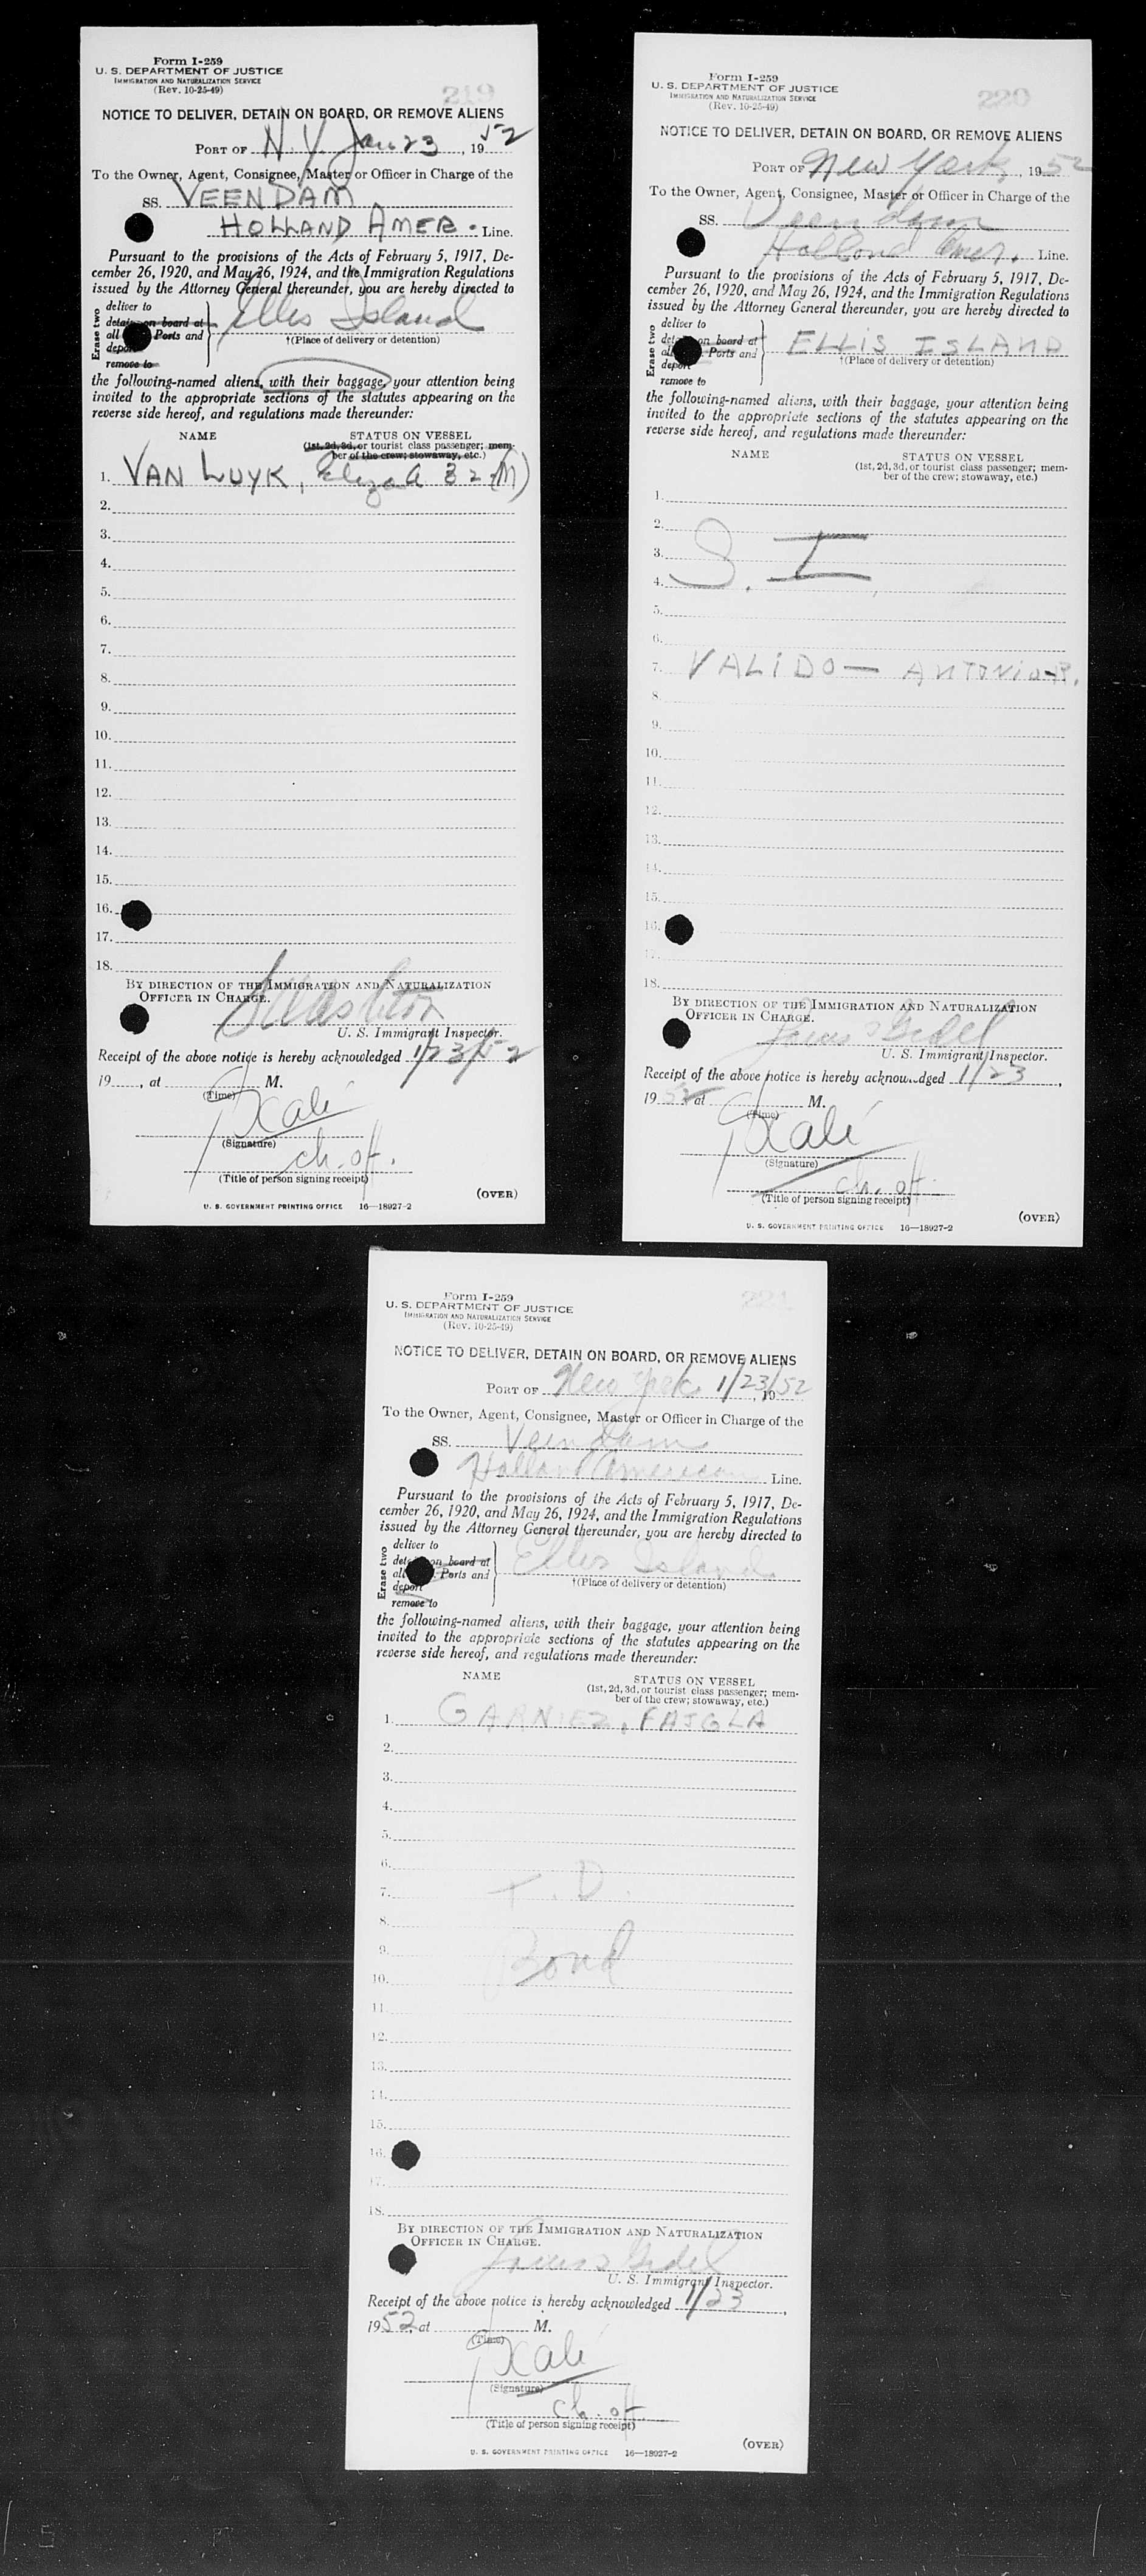 219
Form I-259
U. S. DEPARTMENT OF JUSTICE
IMMIGRATION AND NATURALIZATION SERVICE
(Rev. 10-25-49)
NOTICE TO DELIVER, DETAIN ON BOARD, OR REMOVE ALIENS
PORT OF N. Y Jan 23, 1952
To the Owner, Agent, Consignee, Master or Officer in Charge of the
SS. VEENDAM
HOLLAND AMER. Line.
Pursuant to the provisions of the Acts of February 5, 1917, De-
cember 26, 1920, and May 26, 1924, and the Immigration Regulations
issued by the Attorney General thereunder, you are hereby directed to
Erase two
deliver to
detain on board at
all Ports and
deport
remove to
Ellis Island
†(Place of delivery or detention)
the following-named aliens, with their baggage, your attention being
invited to the appropriate sections of the statutes appearing on the
reverse side hereof, and regulations made thereunder:
NAME STATUS ON VESSEL
(1st, 2d, 3d, or tourist class passenger; mem-
ber of the crew; stowaway, etc.)
1. VAN LUYK, Eliza A 32 (M)
2.
3.
4.
5.
6.
7.
8.
9.
10.
11.
12.
13.
14.
15.
16.
17.
18.
BY DIRECTION OF THE IMMIGRATION AND NATURALIZATION
OFFICER IN CHARGE.
U. S. Immigrant Inspector.
Receipt of the above notice is hereby acknowledged 1/23/52
19, at M.
(Time)
(Signature)
ch. off.
(Title of person signing receipt)
(OVER)
U. S. GOVERNMENT PRINTING OFFICE 16—18927-2
220
Form I-259
U. S. DEPARTMENT OF JUSTICE
IMMIGRATION AND NATURALIZATION SERVICE
(Rev. 10-25-49)
NOTICE TO DELIVER, DETAIN ON BOARD, OR REMOVE ALIENS
PORT OF New York, 1952
To the Owner, Agent, Consignee, Master or Officer in Charge of the
SS. Veendam
Holland Amer. Line.
Pursuant to the provisions of the Acts of February 5, 1917, De-
cember 26, 1920, and May 26, 1924, and the Immigration Regulations
issued by the Attorney General thereunder, you are hereby directed to
Erase two
deliver to
detain on board at
all Ports and
deport
remove to
ELLIS ISLAND
†(Place of delivery or detention)
the following-named aliens, with their baggage, your attention being
invited to the appropriate sections of the statutes appearing on the
reverse side hereof, and regulations made thereunder:
NAME STATUS ON VESSEL
(1st, 2d, 3d, or tourist class passenger; mem-
ber of the crew; stowaway, etc.)
1.
2.
3. S. I.
4.
5.
6.
7. VALIDO — ANTONIO-R.
8.
9.
10.
11.
12.
13.
14.
15.
16.
17.
18.
BY DIRECTION OF THE IMMIGRATION AND NATURALIZATION
OFFICER IN CHARGE.
U. S. Immigrant Inspector.
Receipt of the above notice is hereby acknowledged 1/23,
1952 at M.
(Time)
(Signature)
ch. off.
(Title of person signing receipt)
(OVER)
U. S. GOVERNMENT PRINTING OFFICE 16—18927-2
221
Form I-259
U. S. DEPARTMENT OF JUSTICE
IMMIGRATION AND NATURALIZATION SERVICE
(Rev. 10-25-49)
NOTICE TO DELIVER, DETAIN ON BOARD, OR REMOVE ALIENS
PORT OF New York 1/23/52, 19
To the Owner, Agent, Consignee, Master or Officer in Charge of the
SS. Veendam
Holland American Line.
Pursuant to the provisions of the Acts of February 5, 1917, De-
cember 26, 1920, and May 26, 1924, and the Immigration Regulations
issued by the Attorney General thereunder, you are hereby directed to
Erase two
deliver to
detain on board at
all Ports and
deport
remove to
Ellis Island
†(Place of delivery or detention)
the following-named aliens, with their baggage, your attention being
invited to the appropriate sections of the statutes appearing on the
reverse side hereof, and regulations made thereunder:
NAME STATUS ON VESSEL
(1st, 2d, 3d, or tourist class passenger; mem-
ber of the crew; stowaway, etc.)
1. GARNIEZ, FAJGLA
2.
3.
4.
5.
6.
7. T. D.
8.
9. Bond
10.
11.
12.
13.
14.
15.
16.
17.
18.
BY DIRECTION OF THE IMMIGRATION AND NATURALIZATION
OFFICER IN CHARGE.
U. S. Immigrant Inspector.
Receipt of the above notice is hereby acknowledged 1/23,
1952, at M.
(Time)
(Signature)
ch. off.
(Title of person signing receipt)
(OVER)
U. S. GOVERNMENT PRINTING OFFICE 16—18927-2